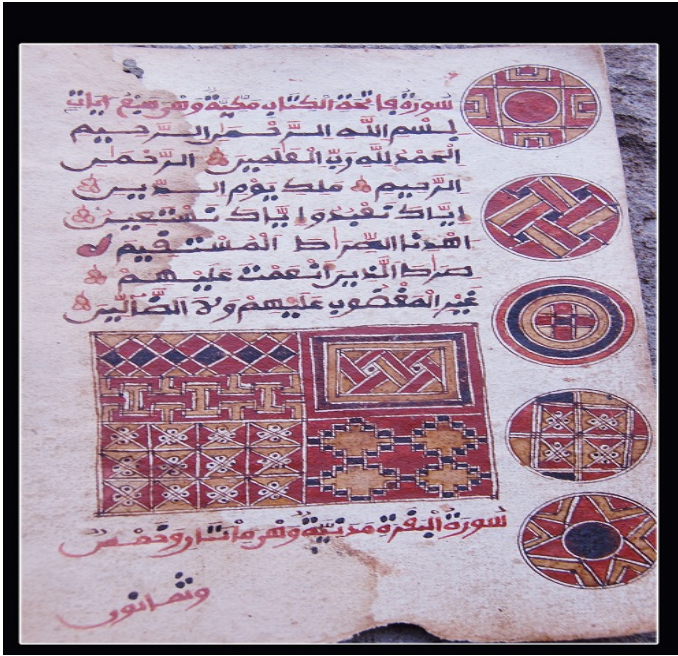 سورة فاتحة الكتاب مكية وهي سبع ايات
بِسْمِ اللَّهِ الرَّحْمَٰنِ الرَّحِيمِ
الْحَمْدُ لِلَّهِ رَبِّ الْعَٰلَمِينَ الرَّحْمَٰنِ
الرَّحِيمِ مَلِكِ يَوْمِ الدِّينِ
إِيَّاكَ نَعْبُدُ وَإِيَّاكَ نَسْتَعِينُ
اهْدِنَا الصِّرَاطَ الْمُسْتَقِيمَ
صِرَاطَ الَّذِينَ أَنْعَمْتَ عَلَيْهِمْ
غَيْرِ الْمَغْضُوبِ عَلَيْهِمْ وَلَا الضَّالِّينَ
سورة البقرة مدنية وهي مائتان وخمس
وثمانون